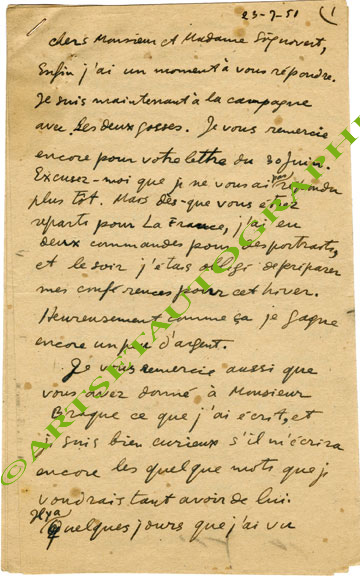 23-7-51 1
chers Monsieur et Madame Sognovert,
Enfin j'ai un moment à vous répondre.
Je suis maintenant à la campagne
avec les deux gosses. Je vous remercie
encore pour votre lettre du 30 Juin.
Excusez-moi que je ne vous ai pas répondu
plus tôt. Mais dès-que vous étiez
reparts pour La France, j'ai eu
deux commandes pour des portraits,
et le soir j'étais obligé de préparer
mes conférences pour cet hiver.
Heureusement comme ça je gagne
encore un peu d'argent.
Je vous remercie aussi que
vous avez donné à Monsieur
Braque ce que j'ai écrit, et
je suis bien curieux s'il m'écrira
encore les quelque mots que je
voudrais tant avoir de lui.
Il y a
quelques jours que j'ai vu
©ARTSETAUTOGRAPHE